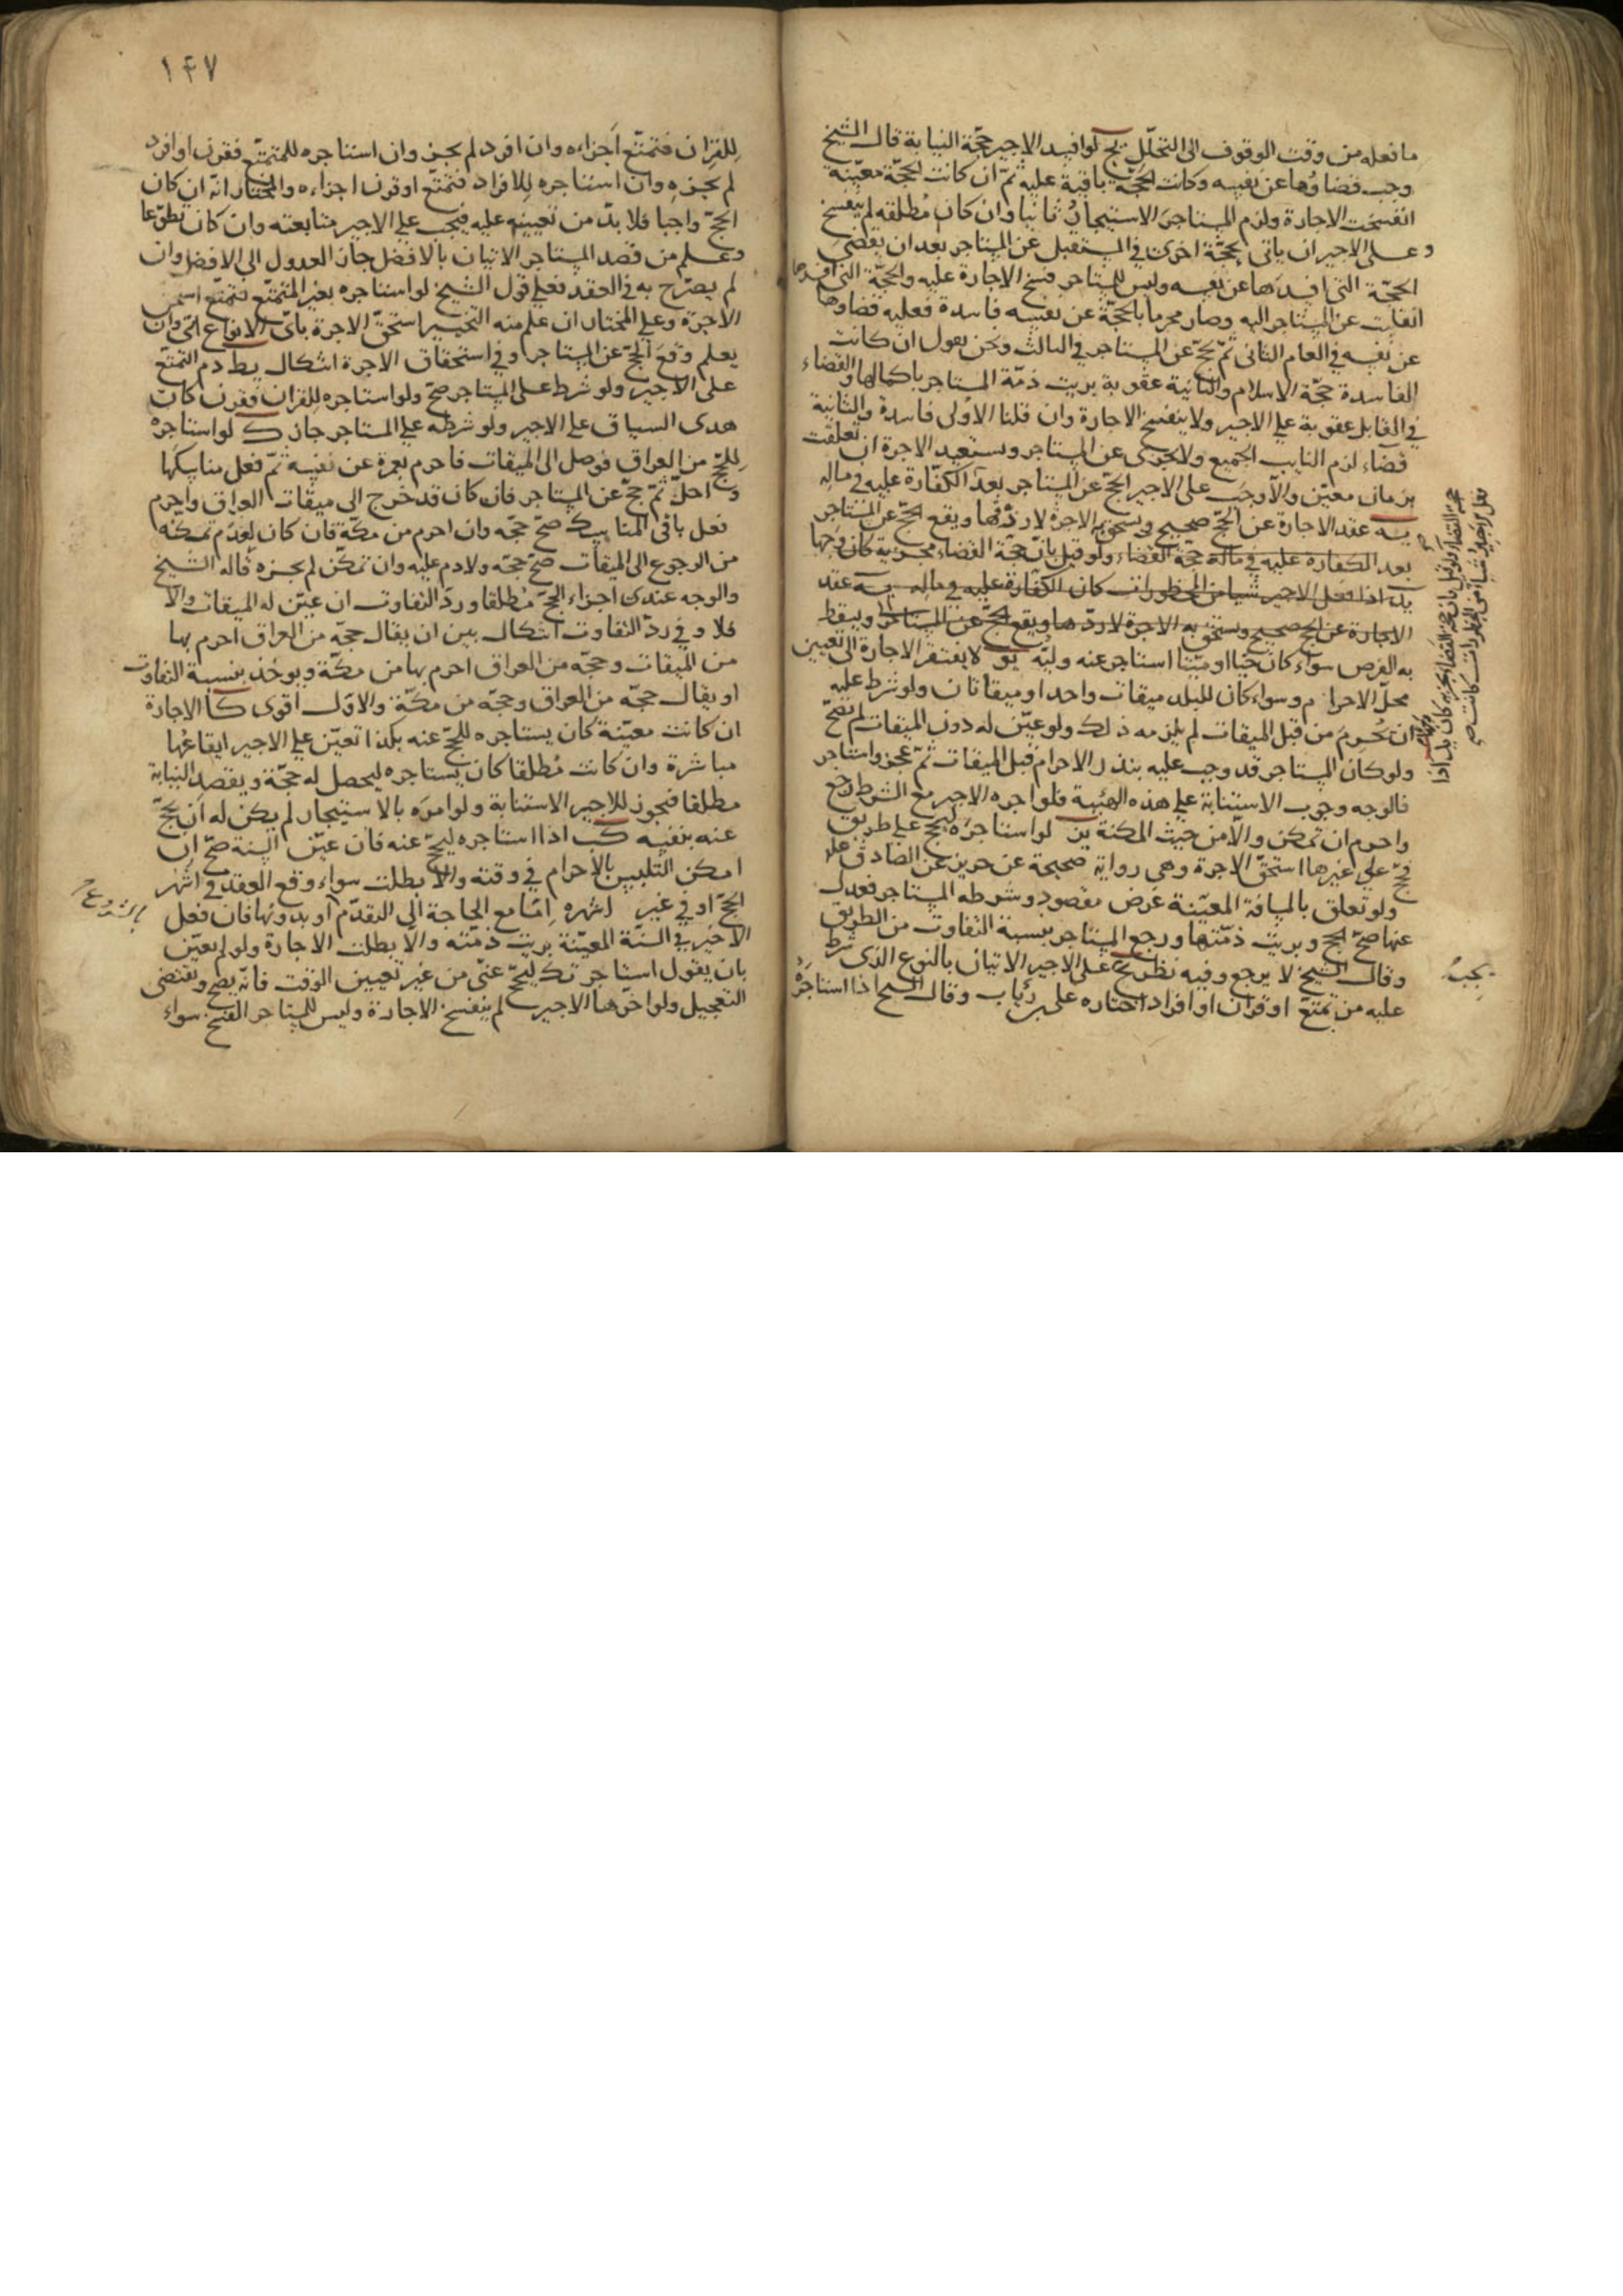 ما فعله من وقت الوقوف الى التحلل يج لو افسد الاجير حجة النيابة قال الشيخ
وجب قضاؤها عن نفسه وكانت الحجة باقية عليه ثم ان كانت الحجة معينة
انفسخت الاجارة ولزم المستاجر الاستيجار ثانيا وان كان مطلقه لم ينفسخ
وعلى الاجير ان ياتى بحجة اخرى في المستقبل عن المستاجر بعد ان يقضى
الحجة التى افسدها عن نفسه وليس للمستاجر فسخ الاجارة عليه والحجة التى افسدها
انقلبت عن المستاجر اليه وصار محرما بالحجة عن نفسه فاسدة فعليه قضاوها
عن نفسه في العام الثانى ثم يحج عن المستاجر في الثالث ونحن نقول ان كانت
الفاسدة حجة الاسلام والثانية عقوبة بريت ذمة المستاجر باكمالها والقضاء
في القابل عقوبة على الاجير ولا ينفسخ الاجارة وان قلنا الاولى فاسدة والثانية
قضاء لزم النايب الجميع ولا يجزى عن المستاجر ويستعيد الاجرة ان تعلقت
بزمان معين والا وجب على الاجير الحج عن المستاجر بعد الكفارة عليه في ماله
يه عقد الاجارة عن الحج صحيح ويستحق به الاجرة لا ردفها ويقع الحج عن المستاجر
بعد الكفارة عليه في ماله حجة القضاء ولو قيل بان حجة القضاء مجزية كان وجها
يد اذا فعل الاجير شيا من المحظورات كان الكفارة عليه في ماله يه عقد
الاجارة عن الحج صحيح ويستحق به الاجرة لا ردها ويقع الحج عن المستاجر ويسقط
به الفرض سواء كان حيا او ميتا استاجر عنه وليه يو لا يفتقر الاجارة الى تعيين
محل الاحرام وسواء كان للبلد ميقات واحد او ميقاتان ولو شرط عليه
ان يحرم من قبل الميقات لم يلزمه ذلك ولو عين له دون الميقات لم تصح
ولو كان المستاجر قد وجب عليه بنذر الاحرام قبل الميقات ثم عجز واستاجر
فالوجه وجوب الاستنابة على هذه الهيئة فلو اجره الاجير مع الشرط رجع
واحرم ان تمكن والا من حيث المكنة يز لو استاجره ليحج على طريق
فحج على غيرها استحق الاجرة وهى رواية صحيحة عن حريز عن الصادق عليه
ولو تعلق بالمسافة المعينة غرض مقصود وشرطه المستاجر فعدل
عنها صح الحج وبريت ذمتها ورجع المستاجر بنسبة التفاوت من الطريق
وقال الشيخ لا يرجع وفيه نظر يح على الاجير الاتيان بالنوع الذى شرط
عليه من تمتع او قران او افراد اختاره على بن رئاب وقال الشيخ اذا استاجره
يجب
حجة القضاء ولو قيل بان حجة القضاء مجزية كان
فعل الاجير شيا من المحظورات كانت
١٤٧
للقران فتمتع اجزاءه وان افرد لم يجز وان استاجره للمتمتع فقرن او افرد
لم يجزه وان استاجره للافراد فتمتع او قرن اجزاءه والمختار انه ان كان
الحج واجبا فلا بد من تعيينه عليه فيجب على الاجير متابعته وان كان تطوعا
وعلم من قصد المستاجر الاتيان بالافضل جاز العدول الى الافضل وان
لم يصرح به في العقد فعلى قول الشيخ لو استاجره بغير المتمتع فتمتع استحق
الاجرة وعلى المختار ان علم منه التخيير استحق الاجرة باى الانواع اتى وان
يعلم وقع الحج عن المستاجر وفي استحقاق الاجرة اشكال يط دم التمتع
على الاجير ولو شرط على المستاجر صح ولو استاجره للقران فقرن كان
هدى السياق على الاجير ولو شرطه على المستاجر جاز ك لو استاجره
للحج من العراق فوصل الى الميقات فاحرم بعمرة عن نفسه ثم فعل مناسكها
واحل ثم حج عن المستاجر فان كان قد خرج الى ميقات العراق واحرم
فعل باقى المناسك صح حجه وان احرم من مكة فان كان لعدم تمكنه
من الرجوع الى الميقات صح حجه ولا دم عليه وان تمكن لم يجزه قاله الشيخ
والوجه عندى اجزاء الحج مطلقا ورد التفاوت ان عين له الميقات والا
فلا وفي رد التفاوت اشكال بين ان يقال حجة من العراق احرم بها
من الميقات وحجة من العراق احرم بها من مكة ويوخذ بنسبة التفاوت
او يقال حجة من العراق وحجة من مكة والاول اقوى كا الاجارة
ان كانت معينة كان يستاجره للحج عنه بكذا تعين على الاجير ايقاعها
مباشرة وان كانت مطلقا كان يستاجره ليحصل له حجة ويقصد النيابة
مطلقا فيجوز للاجير الاستنابة ولو امره بالاستيجار لم يكن له ان يحج
عنه بنفسه كب اذا استاجره ليحج عنه فان عين السنة صح ان
امكن التلبس بالاحرام في وقته والا بطلت سواء وقع العقد في اشهر
الحج او في غير اشهره اما مع الحاجة الى التقدم او بدونها فان فعل
الاجير في السنة المعينة بريت ذمته والا بطلت الاجارة ولو لم يعين
بان يقول استاجرتك ليحج عنى من غير تعيين الوقت فانه يصح ويقتضى
التعجيل ولو اخرها الاجير لم ينفسخ الاجارة وليس للمستاجر الفسخ سواء
بالشروع